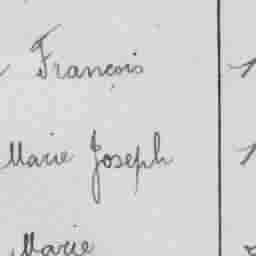 François
Marie Joseph
Marie